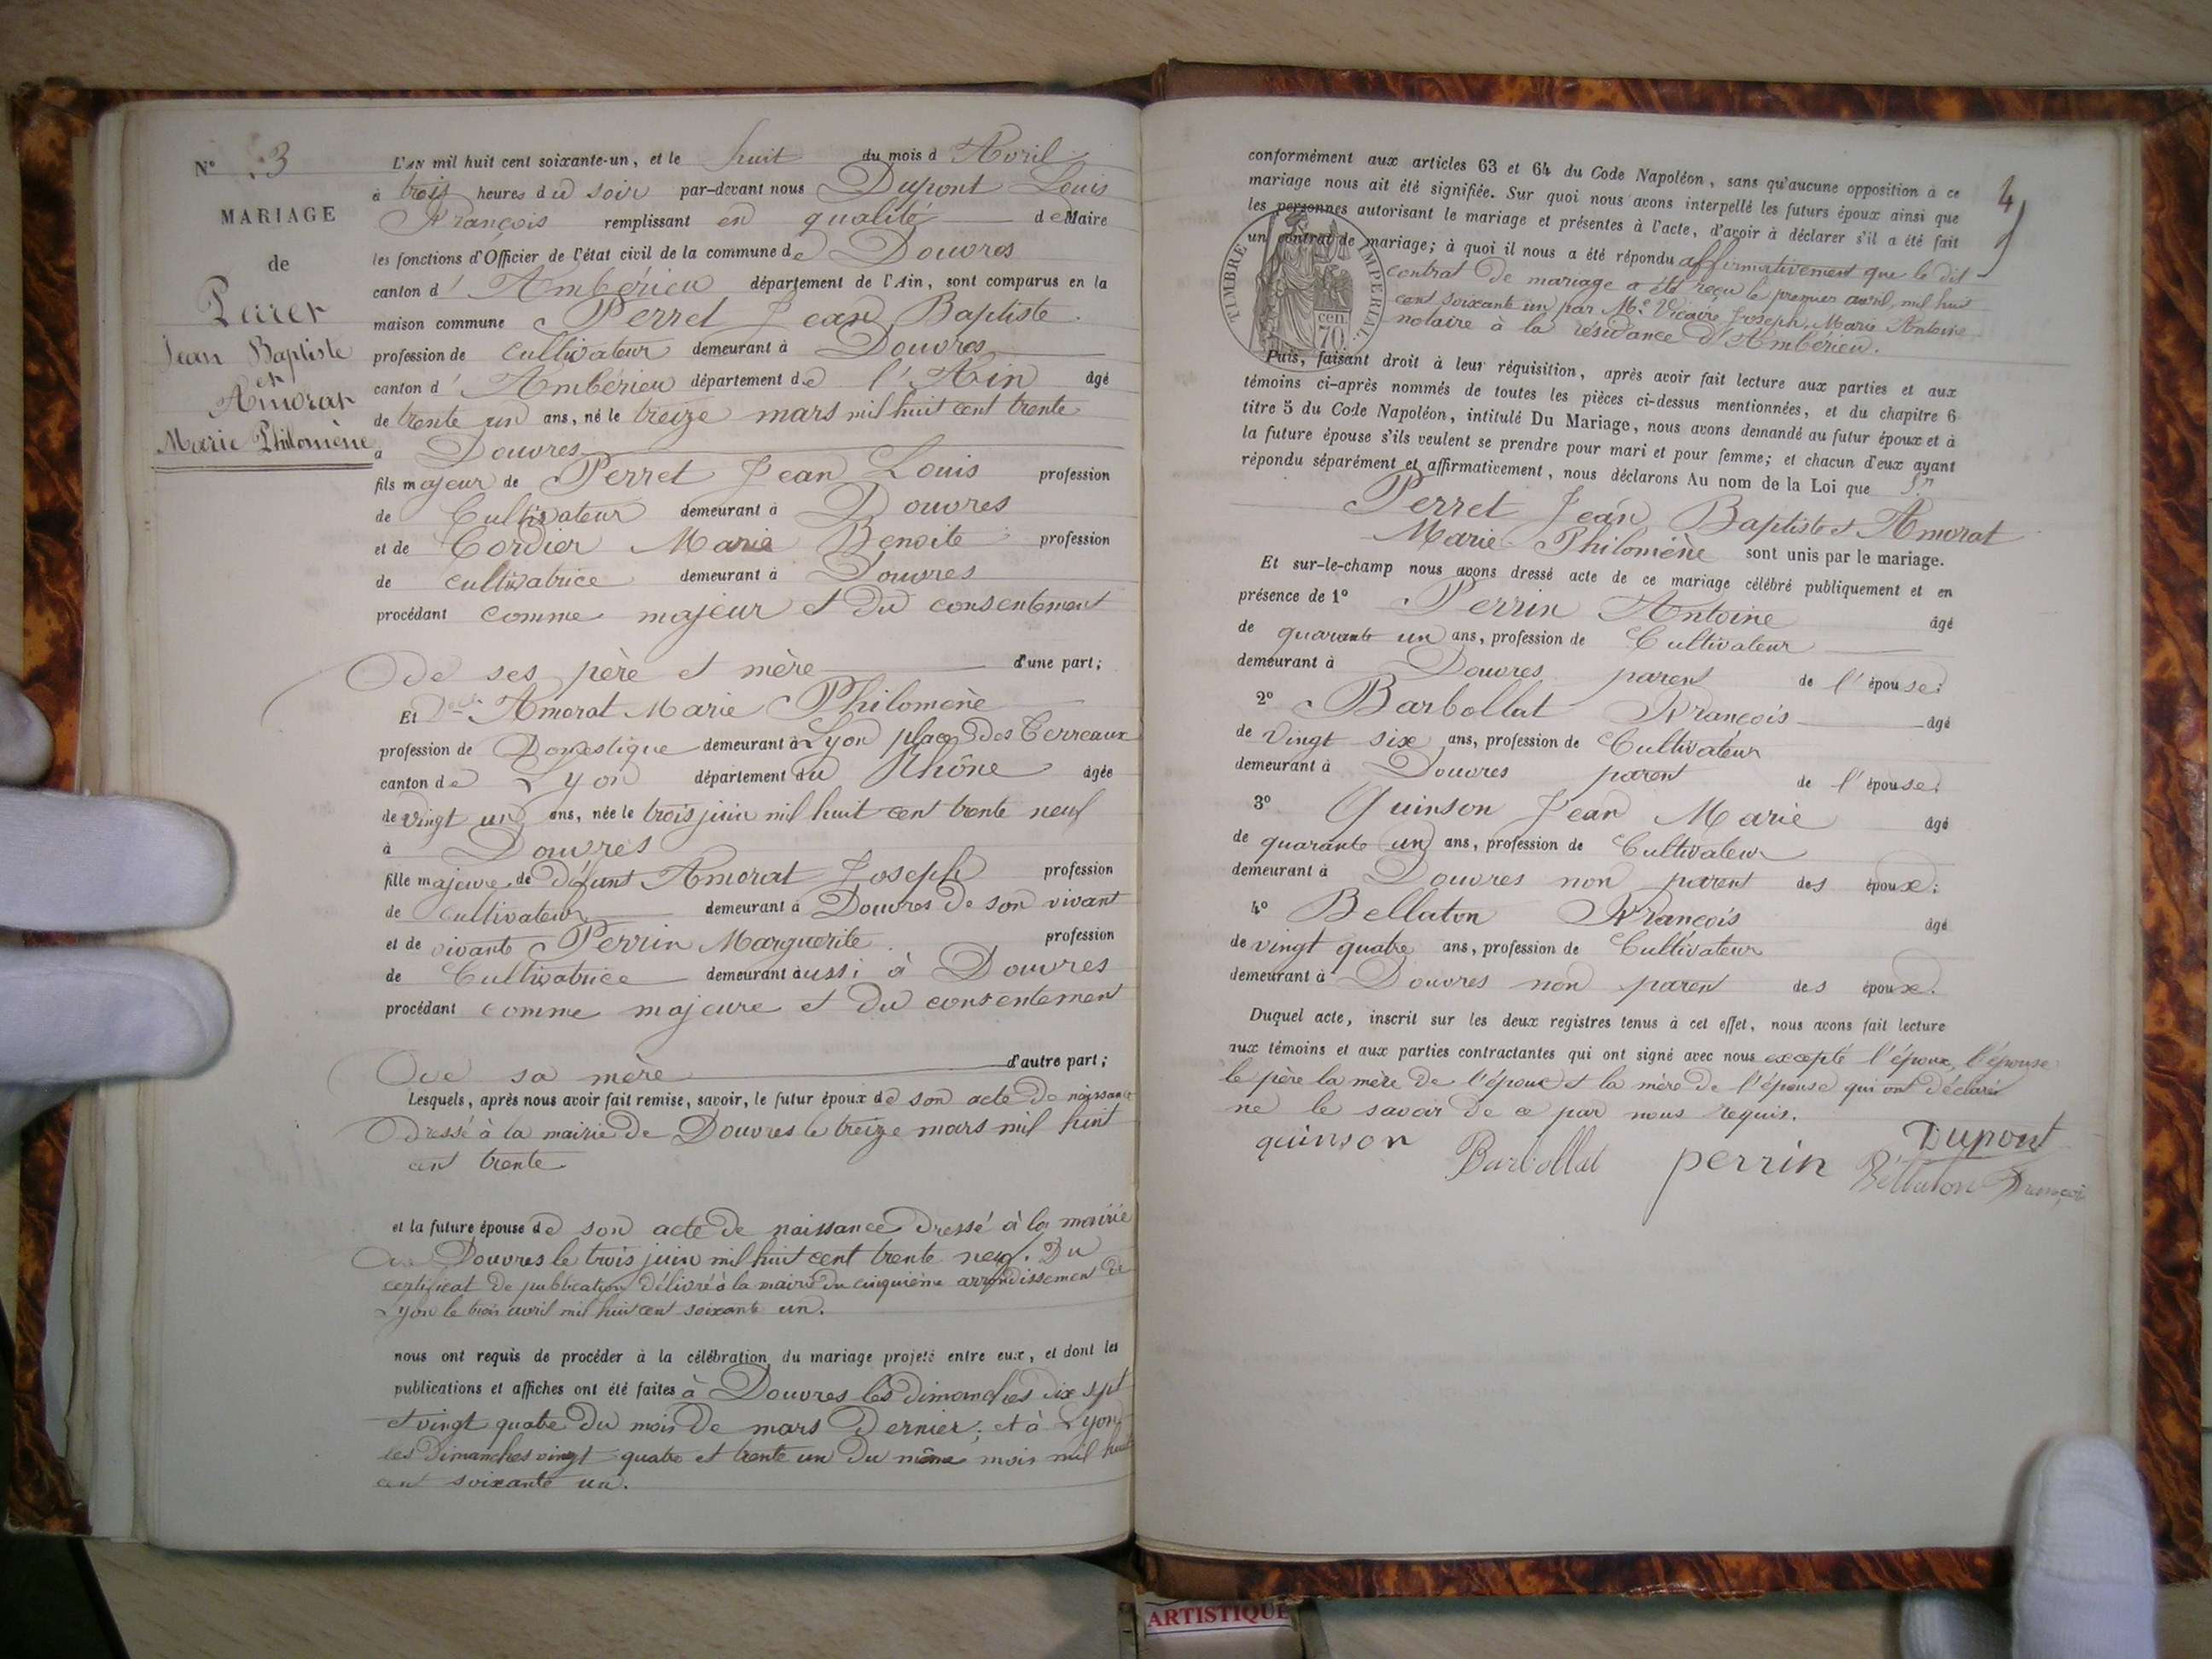 N° 3
MARIAGE
de
Perret
Jean Baptiste
et
Amorat
Marie Philomène
L'AN mil huit cent soixante-un, et le huit du mois d'Avril
à trois heures du soir par-devant nous Dupont Louis
François remplissant en qualité de Maire
les fonctions d'Officier de l'état civil de la commune de Douvres
canton d'Ambérieu département de l'Ain, sont comparus en la
maison commune Perret Jean Baptiste
profession de cultivateur demeurant à Douvres
canton d'Ambérieu département de l'Ain âgé
de trente un ans, né le treize mars mil huit cent trente
à Douvres
fils majeur de Perret Jean Louis profession
de Cultivateur demeurant à Douvres
et de Cordier Marie Benoite profession
de cultivatrice demeurant à Douvres
procédant comme majeur et du consentement
De ses père et mère d'une part;
Et Delle Amorat Marie Philomène
profession de Domestique demeurant à Lyon place des Terreaux
canton de Lyon département du Rhône âgée
de vingt un ans, née le trois juin mil huit cent trente neuf
à Douvres
fille majeure de défunt Amorat Joseph profession
de cultivateur demeurant à Douvres de son vivant
et de vivante Perrin Marguerite profession
de Cultivatrice demeurant aussi à Douvres
procédant comme majeure et du consentement
De sa mère d'autre part;
Lesquels, après nous avoir fait remise, savoir, le futur époux de son acte de naissance
Dressé à la mairie de Douvres le treize mars mil huit
cent trente
et la future épouse de son acte de naissance dressé à la mairie
De Douvres le trois juin mil huit cent trente neuf. Du
certificat de publication délivré à la mairie du cinquième arrondissement de
Lyon le trois avril mil huit cent soixante un.
nous ont requis de procéder à la célébration du mariage projeté entre eux, et dont les
publications et affiches ont été faites à Douvres les dimanches dix sept
et vingt quatre du mois de mars dernier; et à Lyon
les Dimanches vingt quatre et trente un du même mois mil huit
cent soixante un.
4
conformément aux articles 63 et 64 du Code Napoléon, sans qu'aucune opposition à ce
mariage nous ait été signifiée. Sur quoi nous avons interpellé les futurs époux ainsi que
les personnes autorisant le mariage et présentes à l'acte, d'avoir à déclarer s'il a été fait
un contrat de mariage; à quoi il nous a été répondu affirmativement que le dit
contrat de mariage a été reçu le premier avril, mil huit
cent soixante un par Me Vicaire Joseph, Marie Antoine
notaire à la résidence d'Ambérieu.
TIMBRE IMPÉRIAL
cen
70
Puis, faisant droit à leur réquisition, après avoir fait lecture aux parties et aux
témoins ci-après nommés de toutes les pièces ci-dessus mentionnées, et du chapitre 6
titre 5 du Code Napoléon, intitulé Du Mariage, nous avons demandé au futur époux et à
la future épouse s'ils veulent se prendre pour mari et pour femme; et chacun d'eux ayant
répondu séparément et affirmativement, nous déclarons Au nom de la Loi que
Perret Jean Baptiste et Amorat
Marie Philomène sont unis par le mariage.
Et sur-le-champ nous avons dressé acte de ce mariage célébré publiquement et en
présence de 1° Perrin Antoine âgé
de quarante un ans, profession de Cultivateur
demeurant à Douvres parent de l'épouse;
2° Barbollat François âgé
de Vingt six ans, profession de Cultivateur
demeurant à Douvres parent de l'épouse;
3° Quinson Jean Marie âgé
de quarante un ans, profession de Cultivateur
demeurant à Douvres non parent des époux;
4° Bellaton François âgé
de vingt quatre ans, profession de Cultivateur
demeurant à Douvres non parent des époux.
Duquel acte, inscrit sur les deux registres tenus à cet effet, nous avons fait lecture
aux témoins et aux parties contractantes qui ont signé avec nous excepté l'époux, l'épouse
le père la mère de l'époux et la mère de l'épouse qui ont déclaré
ne le savoir de ce par nous requis.
quinson Barbollat perrin Dupont
Bellaton François
ARTISTIQUE